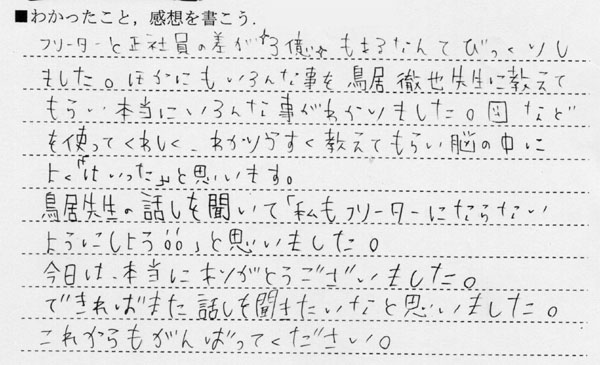 ■わかったこと，感想を書こう．
フリーターと正社員の差が☆3億☆もあるなんてびっくりし
ました。ほかにもいろんな事を鳥居徹也先生に教えて
もらい本当にいろんな事がわかりました。図など
を使ってくわしく、わかりやすく教えてもらい脳の中に
よく「はいった」と思います。
鳥居先生の話しを聞いて「私もフリーターにならない
ようにしよう!!」と思いました。
今日は、本当にありがとうございました。
できればまた話しを聞きたいなと思いました。
これからもがんばってください。